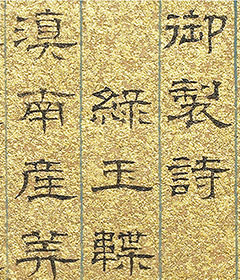 御製詩
綠玉韘
滇南産美